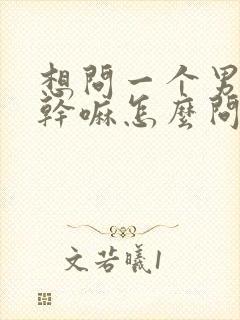 想問一个男
幹嘛怎麼問
文若曦1